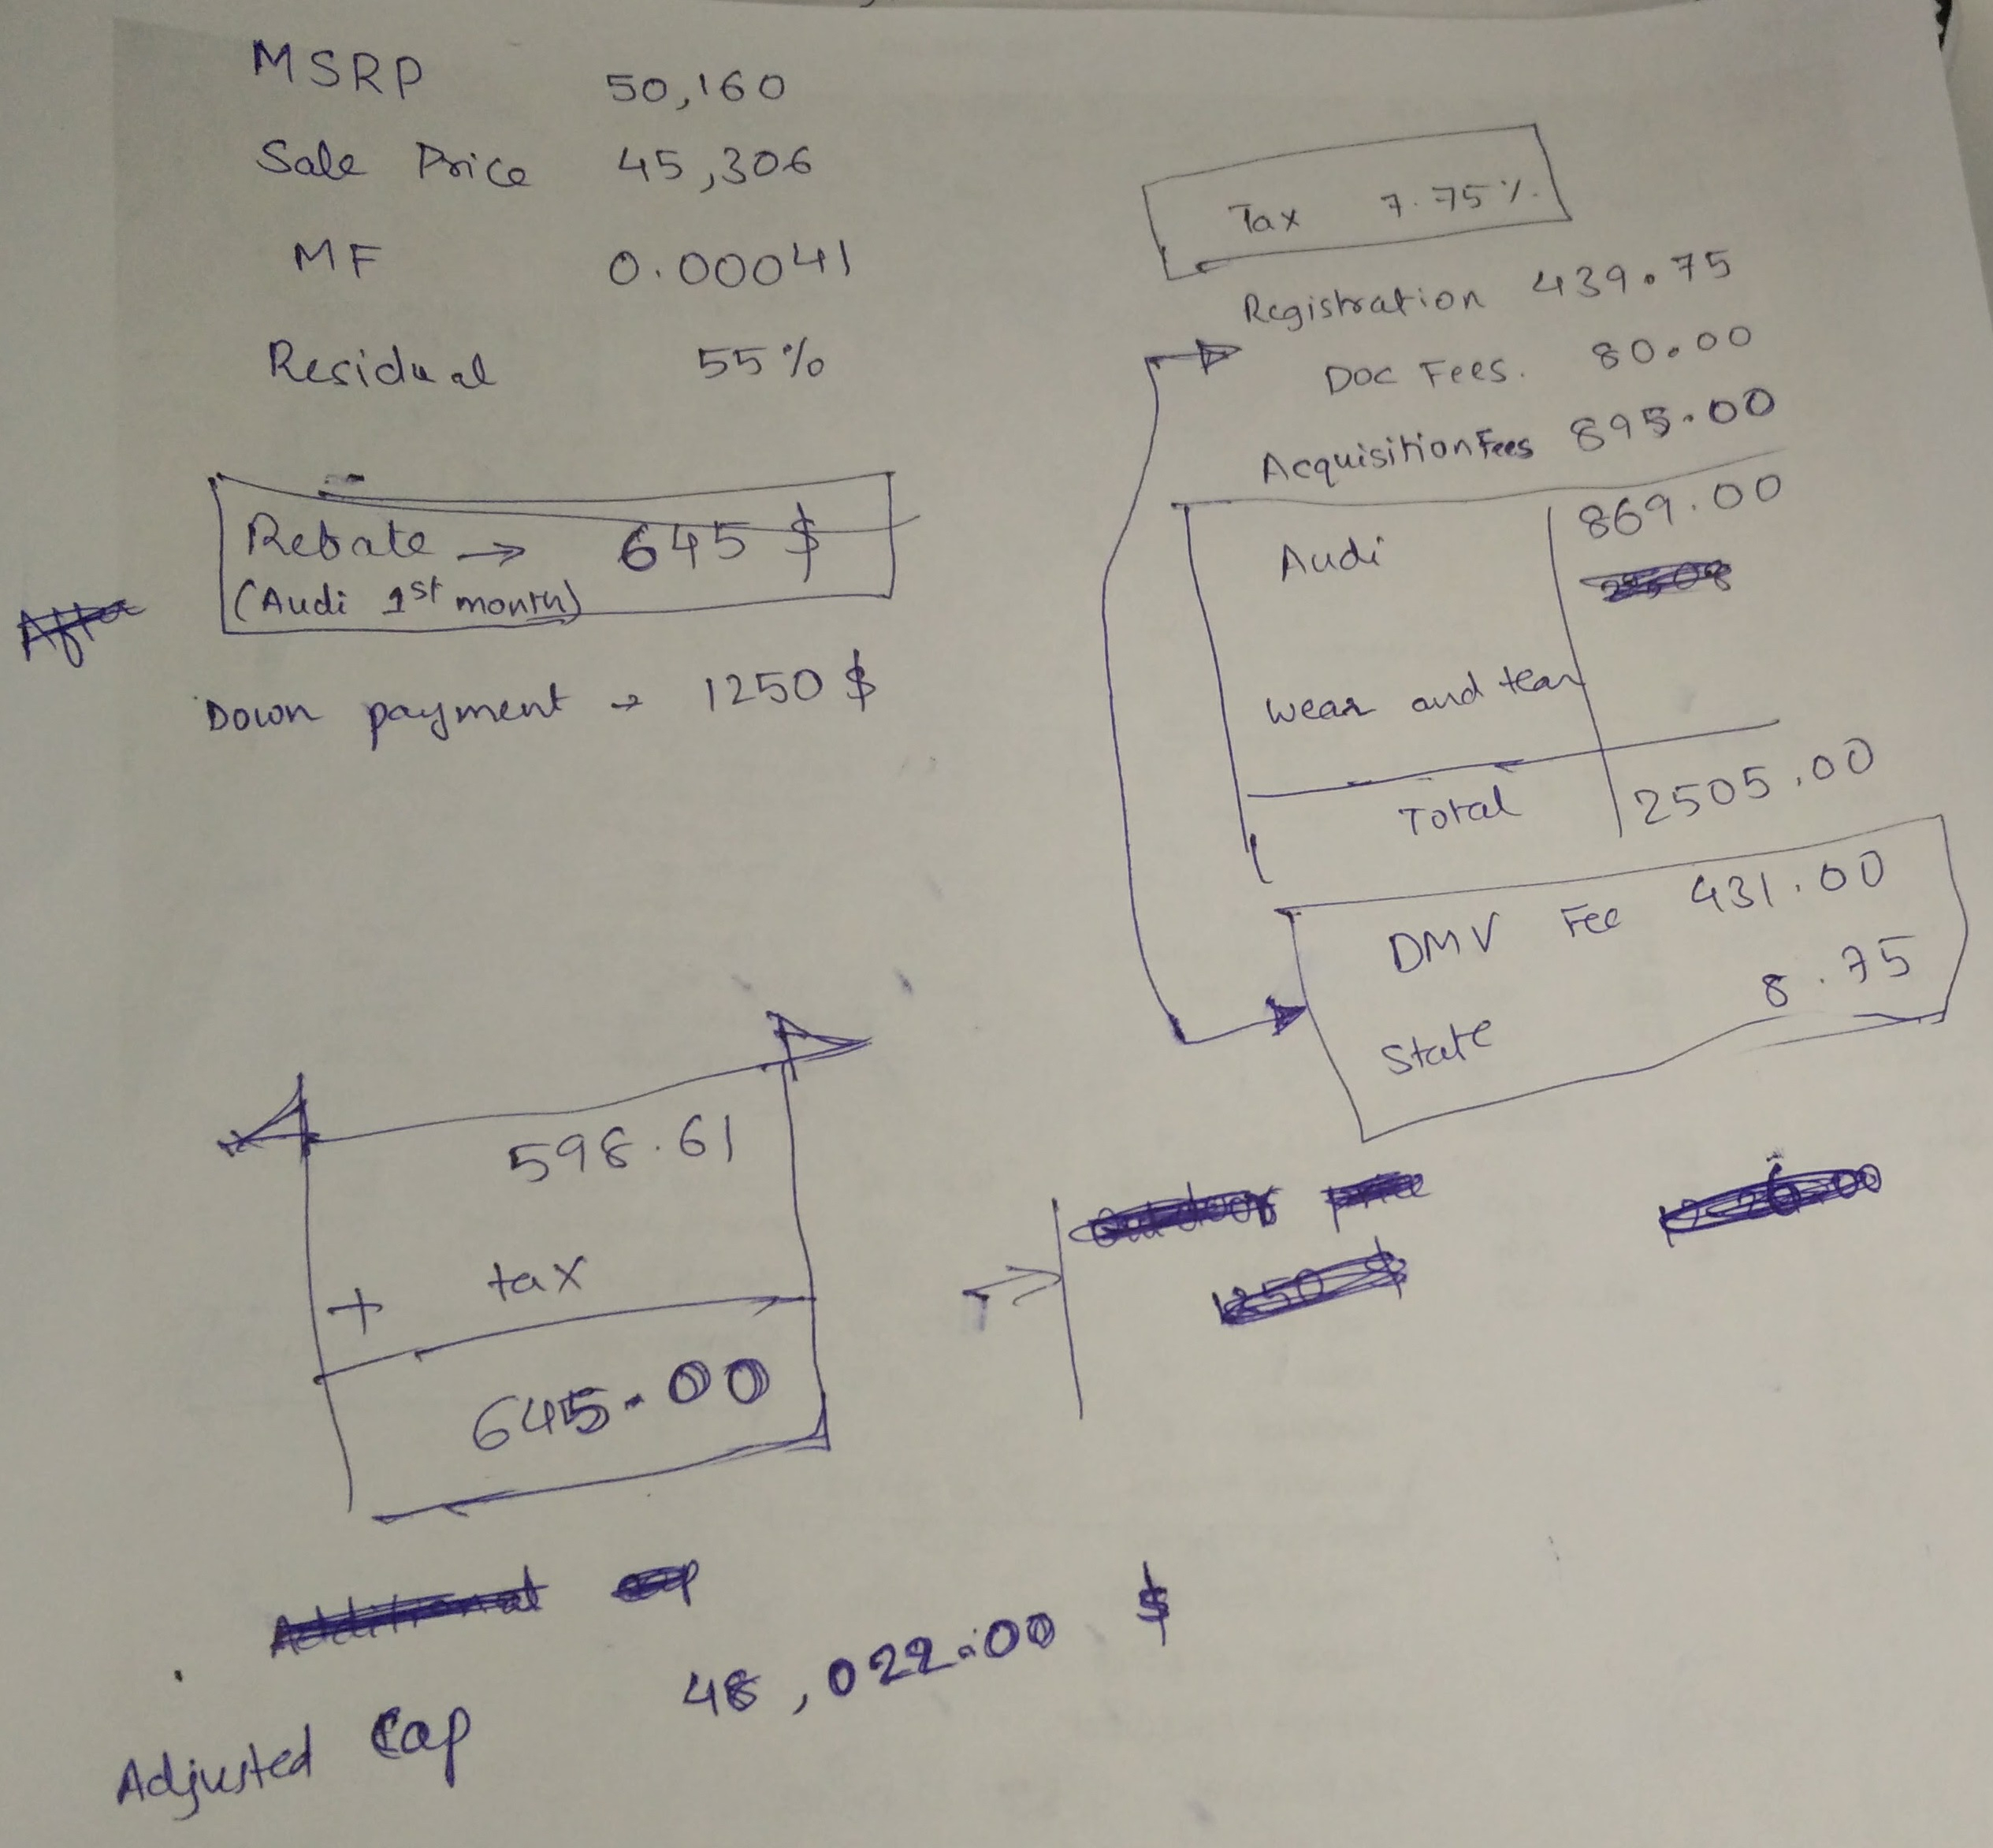 MSRP 50,160
Sale Price 45,306
MF 0.00041
Residual 55%
Rebate → 645 $
(Audi 1st month)
Down payment → 1250 $
Tax 7.75%
Registration 439.75
Doc Fees. 80.00
Acquisition Fees 895.00
Audi 869.00
wear and tear
Total 2505.00
DMV Fee 431.00
State 8.75
598.61
+ tax
645.00
Adjusted Cap 48,022.00 $